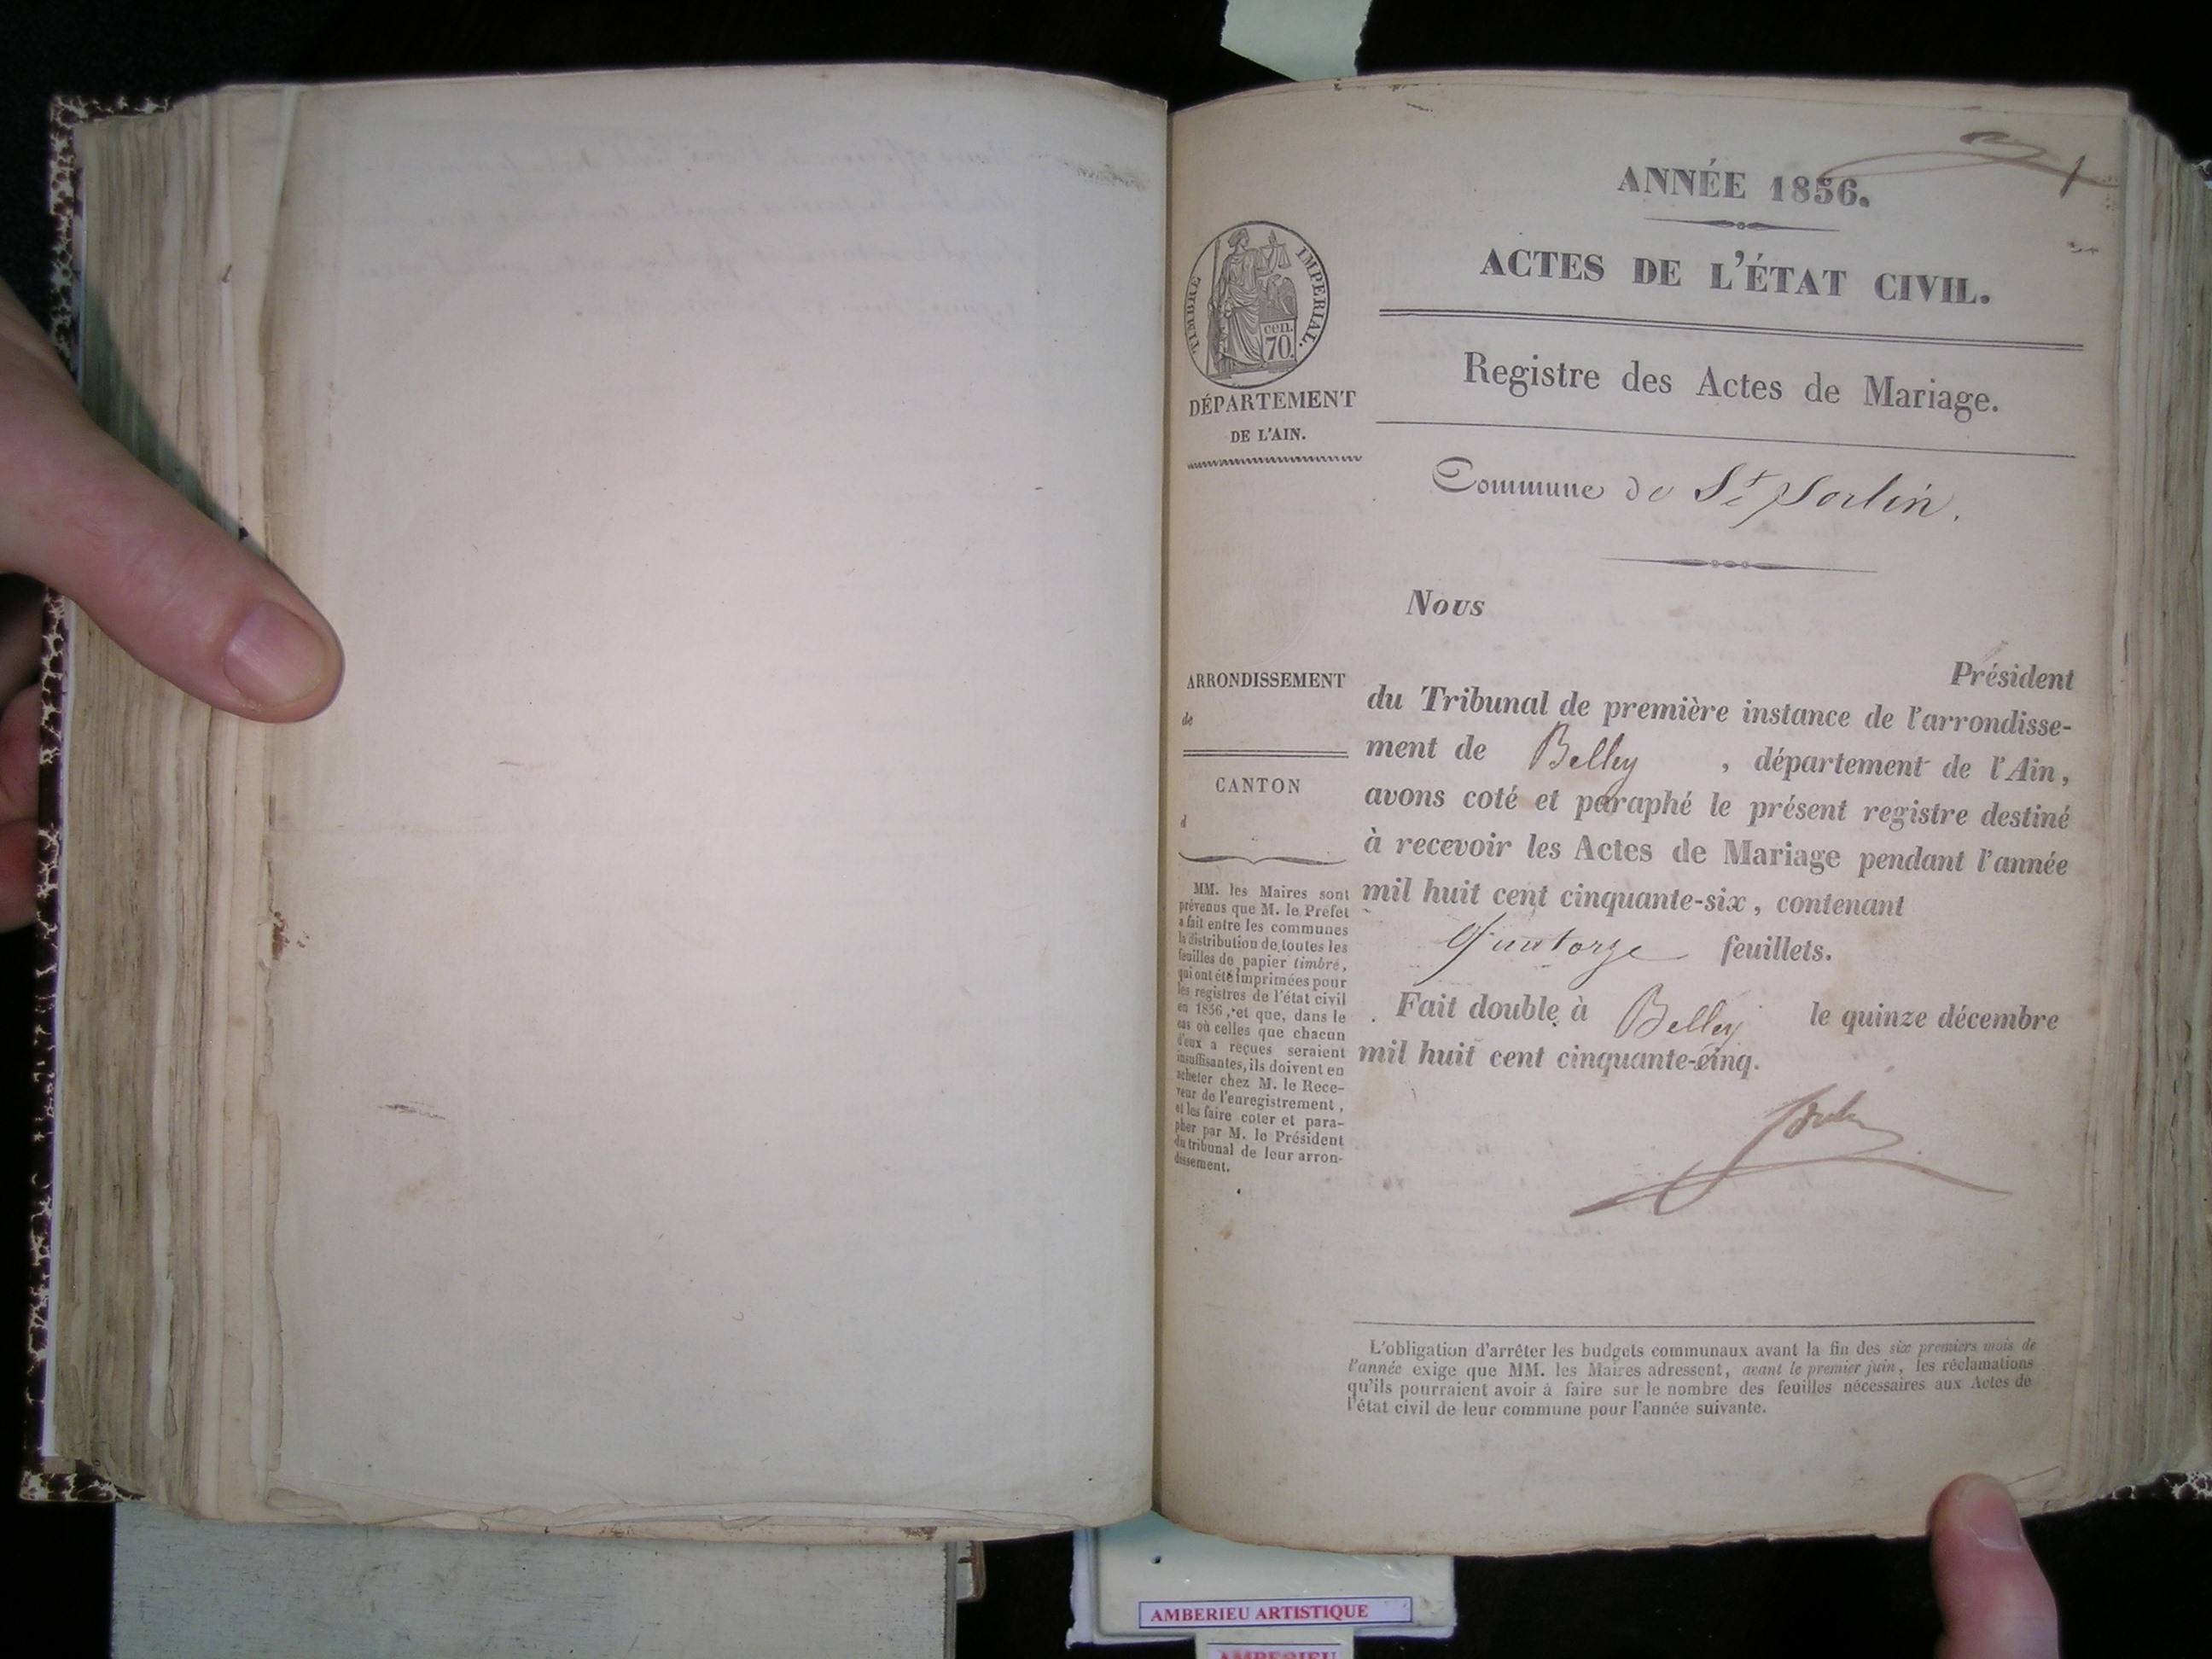 ANNÉE 1856.
ACTES DE L'ÉTAT CIVIL.
Registre des Actes de Mariage.
Commune de St Sorlin.
TIMBRE IMPERIAL.
cen.
70.
DÉPARTEMENT
DE L'AIN.
ARRONDISSEMENT
de
CANTON
d
MM. les Maires sont
prévenus que M. le Préfet
a fait entre les communes
la distribution de toutes les
feuilles de papier timbré,
qui ont été imprimées pour
les registres de l'état civil
en 1856, et que, dans le
cas où celles que chacun
d'eux a reçues seraient
insuffisantes, ils doivent en
acheter chez M. le Rece-
veur de l'enregistrement,
et les faire coter et para-
pher par M. le Président
du tribunal de leur arron-
dissement.
Nous
Président
du Tribunal de première instance de l'arrondisse-
ment de Belley, département de l'Ain,
avons coté et paraphé le présent registre destiné
à recevoir les Actes de Mariage pendant l'année
mil huit cent cinquante-six, contenant
Quatorze feuillets.
Fait double à Belley le quinze décembre
mil huit cent cinquante-cinq.
L'obligation d'arrêter les budgets communaux avant la fin des six premiers mois de
l'année exige que MM. les Maires adressent, avant le premier juin, les réclamations
qu'ils pourraient avoir à faire sur le nombre des feuilles nécessaires aux Actes de
l'état civil de leur commune pour l'année suivante.
AMBERIEU ARTISTIQUE
AMBERIEU